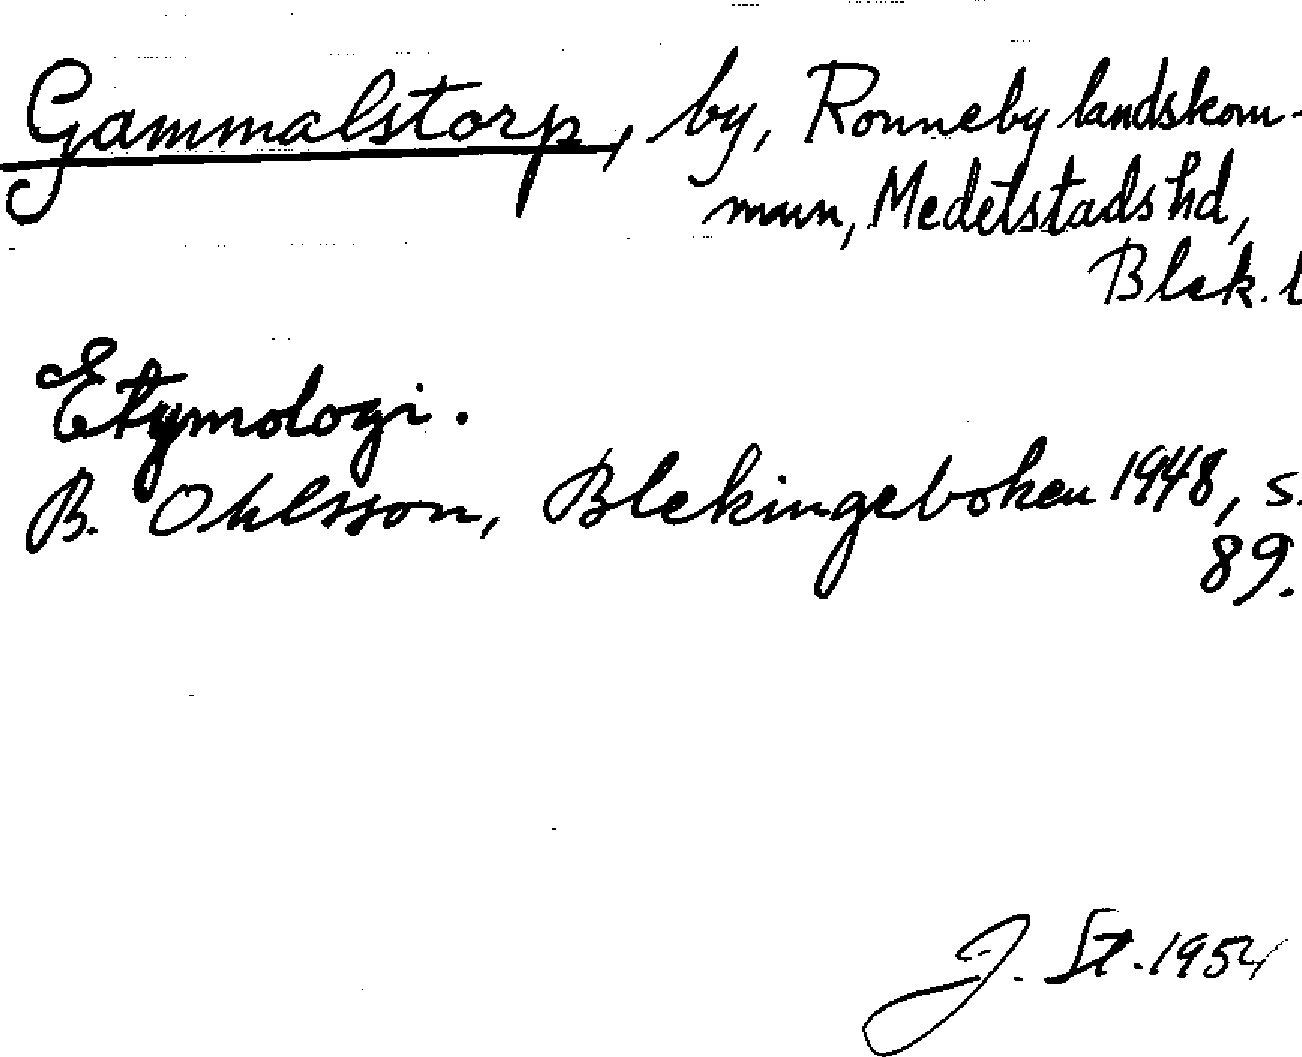 Gammalstorp, by, Ronneby landskom-
mun, Medelstads hd,
Blek. l
Etymologi.
B. Ohlsson, Blekingeboken 1948, s.
89.
J. St. 1954